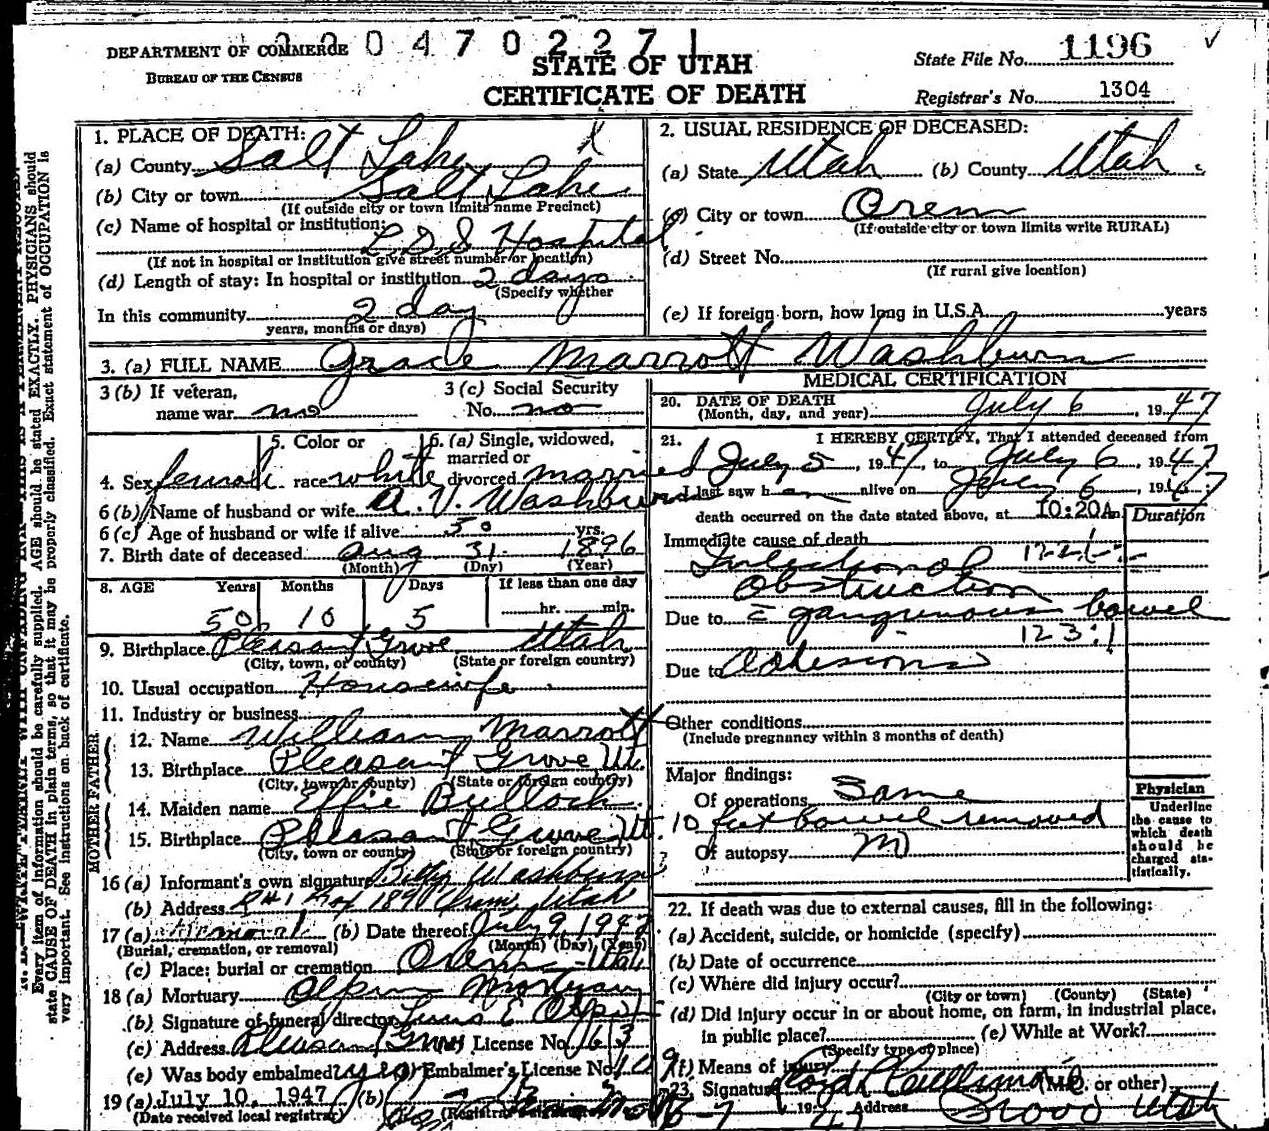 2 2 0 4 7 0 2 2 7 1
DEPARTMENT OF COMMERCE
BUREAU OF THE CENSUS
STATE OF UTAH
CERTIFICATE OF DEATH
State File No. 1196
Registrar's No. 1304
1. PLACE OF DEATH:
(a) County Salt Lake
(b) City or town Salt Lake
(If outside city or town limits name Precinct)
(c) Name of hospital or institution:
L.D.S Hospital
(If not in hospital or institution give street number or location)
(d) Length of stay: In hospital or institution 2 days
(Specify whether
In this community 2 day
years, months or days)
2. USUAL RESIDENCE OF DECEASED:
(a) State Utah (b) County Utah
(c) City or town Orem
(If outside city or town limits write RURAL)
(d) Street No.
(If rural give location)
(e) If foreign born, how long in U.S.A. years
3. (a) FULL NAME Grace Marrott Washburn
3 (b) If veteran,
name war no
3 (c) Social Security
No. no
4. Sex female
5. Color or
race white
6. (a) Single, widowed,
married or
divorced married
6 (b) Name of husband or wife A. V. Washburn
6 (c) Age of husband or wife if alive 50 yrs.
7. Birth date of deceased Aug 31 1896
(Month) (Day) (Year)
8. AGE Years Months Days If less than one day
50 10 5 hr. min.
9. Birthplace Pleasant Grove Utah
(City, town, or county) (State or foreign country)
10. Usual occupation Housewife
11. Industry or business
FATHER
12. Name William Marrott
13. Birthplace Pleasant Grove Ut.
(City, town or county) (State or foreign country)
MOTHER
14. Maiden name Effie Bullock
15. Birthplace Pleasant Grove Ut.
(City, town or county) (State or foreign country)
16 (a) Informant's own signature Billy Washburn
(b) Address Utah
17 (a) Removal (b) Date thereof July 9, 1947
(Burial, cremation, or removal) (Month) (Day), (Year)
(c) Place: burial or cremation Orem - Utah
18 (a) Mortuary Olpin Mortuary
(b) Signature of funeral director E Olpin
(c) Address Pleasant Grove License No. 163
(e) Was body embalmed? yes Embalmer's License No.
19 (a) July 10, 1947 (b)
(Date received local registrar) (Registrar's
MEDICAL CERTIFICATION
20. DATE OF DEATH
(Month, day, and year) July 6, 1947
21. I HEREBY CERTIFY, That I attended deceased from
July 5, 1947, to July 6, 1947
I last saw h alive on July 6, 1947
death occurred on the date stated above, at 10:20A m. Duration
Immediate cause of death
Intestional
Obstruction
Due to = gangrenous bowel
123:1
Due to Adhesions
Other conditions
(Include pregnancy within 3 months of death)
Major findings:
Of operations Same
10 feet bowel removed
Of autopsy no
Physician
Underline
the cause to
which death
should be
charged sta-
tistically.
22. If death was due to external causes, fill in the following:
(a) Accident, suicide, or homicide (specify)
(b) Date of occurrence
(c) Where did injury occur?
(City or town) (County) (State)
(d) Did injury occur in or about home, on farm, in industrial place,
in public place? (e) While at Work?
(Specify type of place)
(f) Means of injury
23. Signature (M.D. or other)
Address Provo Utah
Every item of information should be carefully supplied. AGE should be stated EXACTLY. PHYSICIANS should
state CAUSE OF DEATH in plain terms, so that it may be properly classified. Exact statement of OCCUPATION is
very important. See instructions on back of certificate.